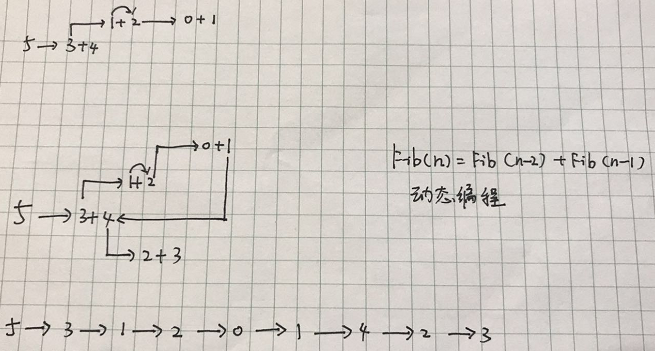 5 → 3+4 → 1+2 → 0+1
0+1
1+2
Fib(n) = Fib(n-2) + Fib(n-1)
动态编程
5 → 3+4
2+3
5 → 3 → 1 → 2 → 0 → 1 → 4 → 2 → 3